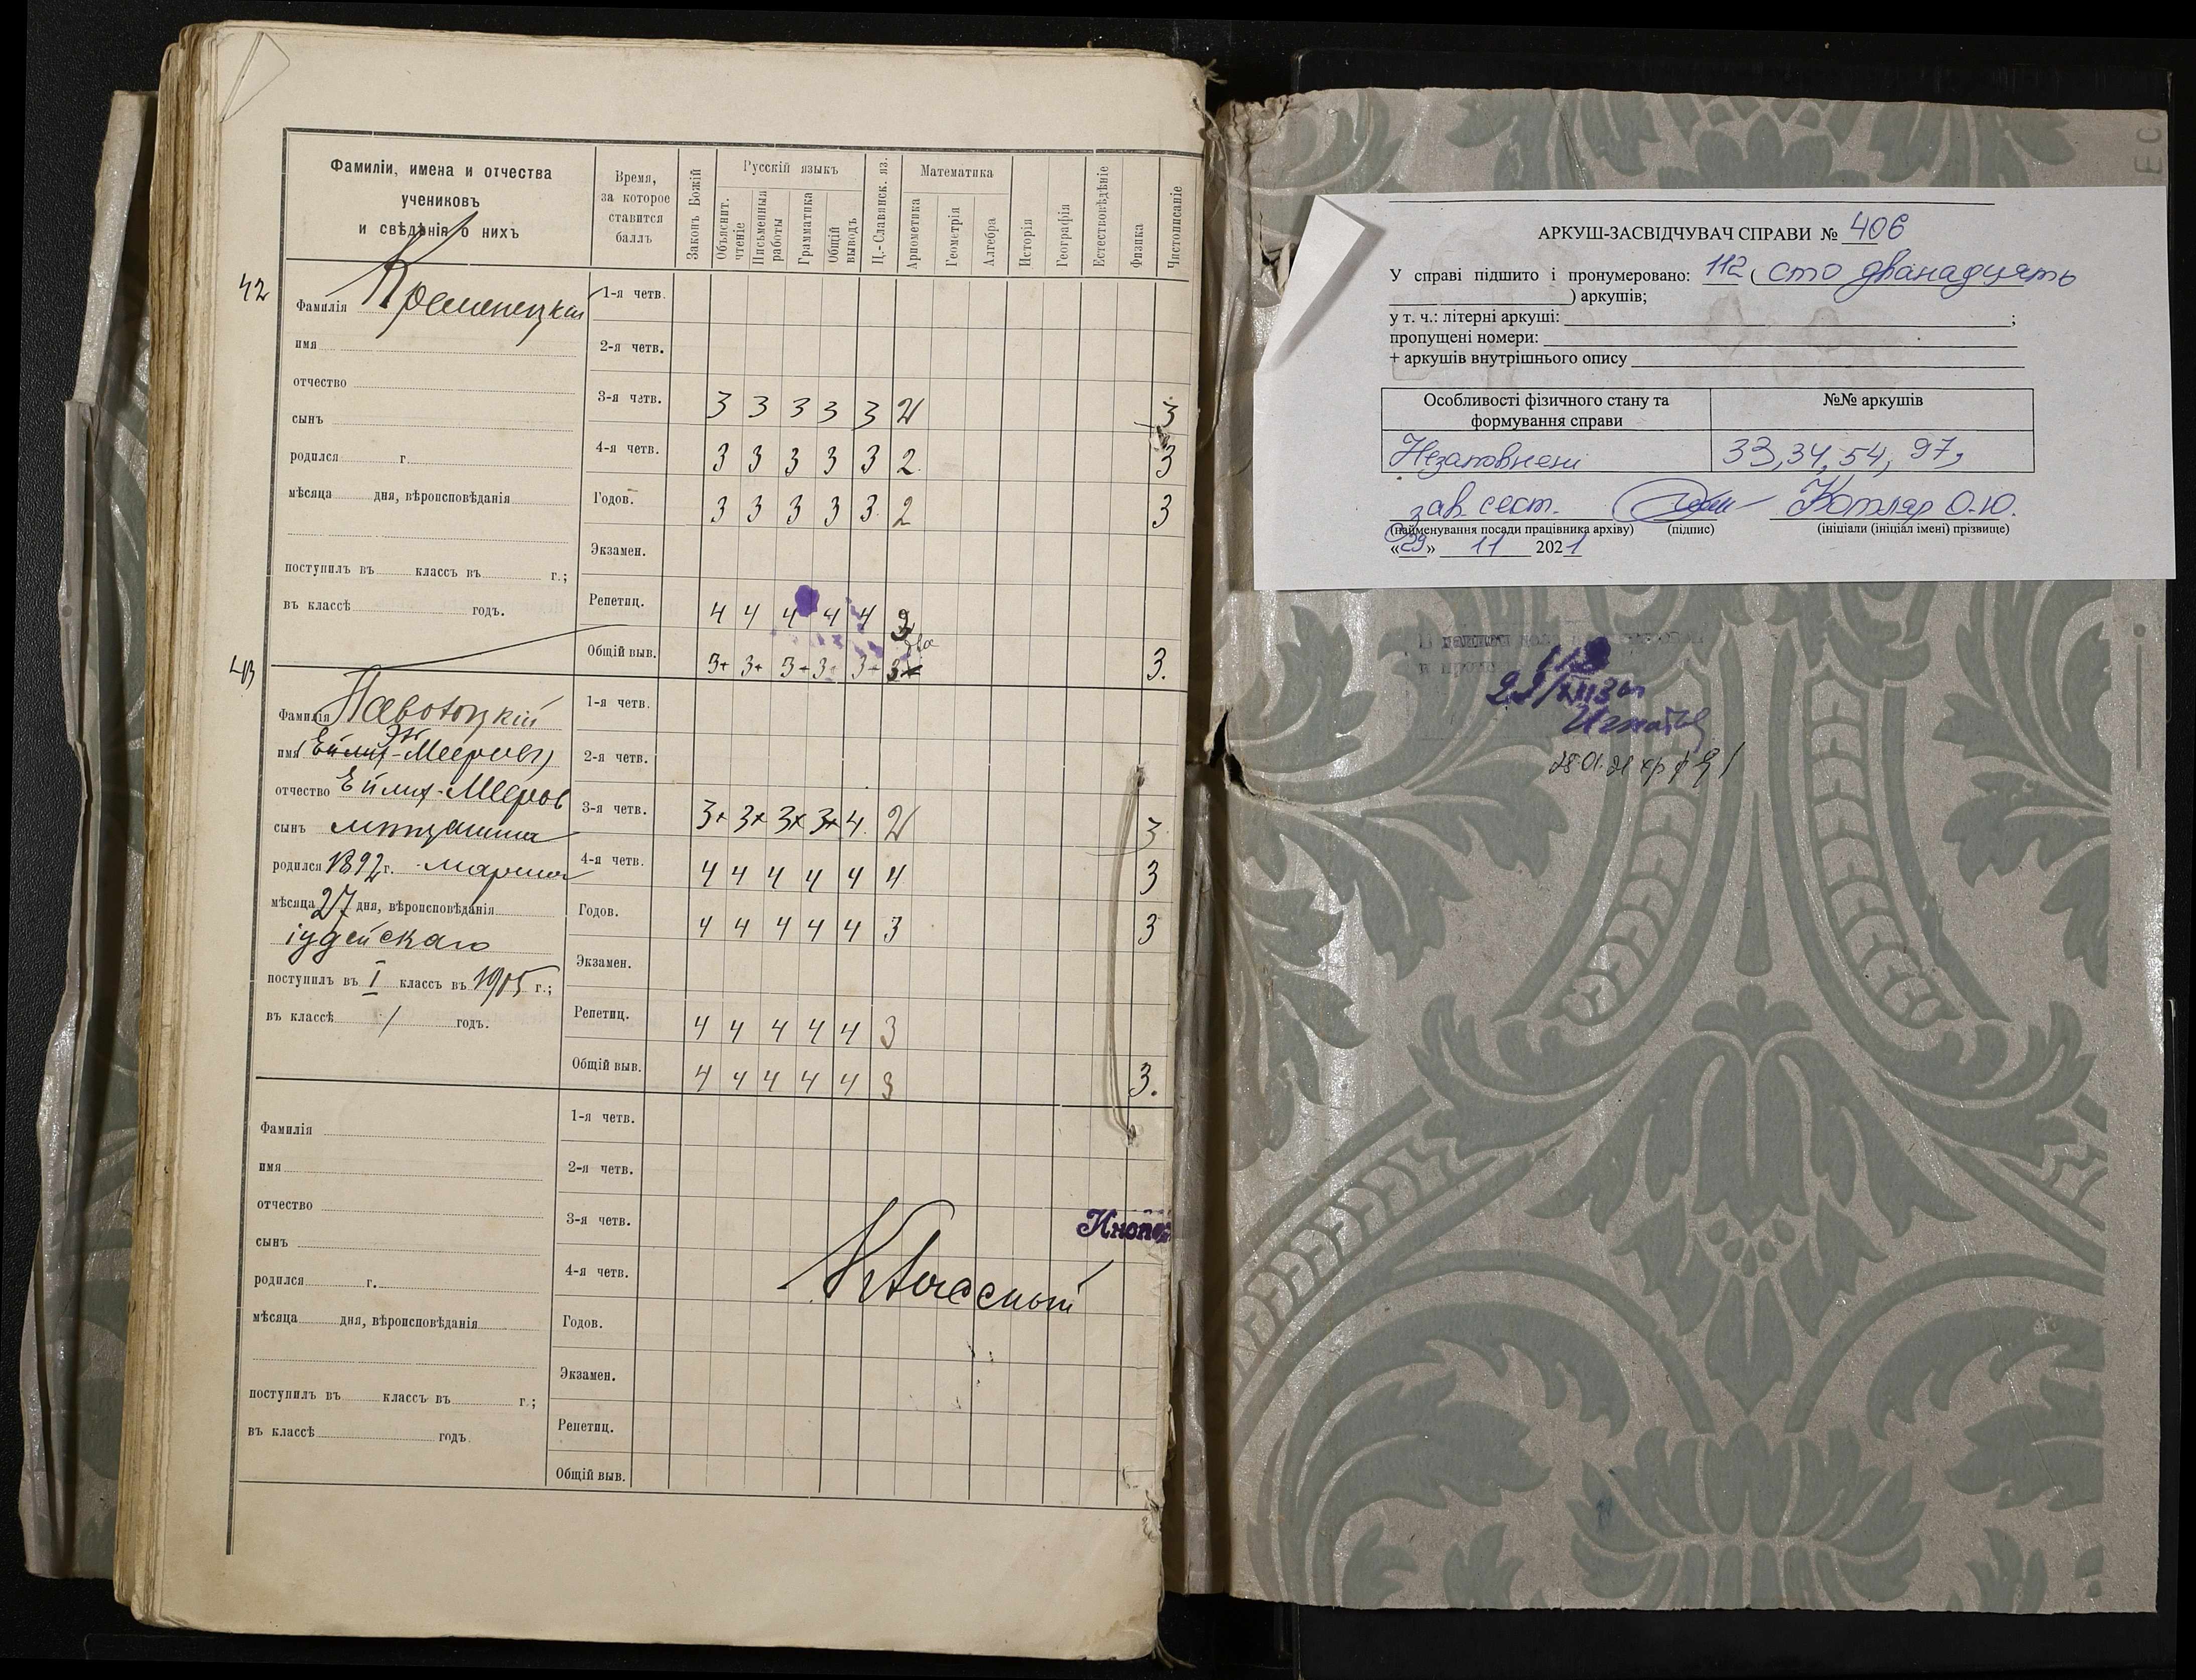 Фамиліи, имена и отчества
учениковъ
и свѣдѣнія о нихъ
Время,
за которое
ставится
баллъ
Законъ Божій
Русскій языкъ
Объяснит.
чтеніе
Письменныя
работы
Грамматика
Общій
выводъ
Ц.-Славянск. яз.
Математика
Ариѳметика
Геометрія
Алгебра
Исторія
Географія
Естествовѣдѣніе
Физика
Чистописаніе
42
Фамилія Кременецкій
имя
отчество
сынъ
родился г.
мѣсяца дня, вѣроисповѣданія
поступилъ въ классъ въ г.;
въ классѣ годъ.
1-я четв.
2-я четв.
3-я четв. 3 3 3 3 3 2 3
4-я четв. 3 3 3 3 3 2. 3
Годов. 3 3 3 3 3 2 3
Экзамен.
Репетиц. 4 4 4 4 4
два
Общій выв. 3+ 3+ 3+ 3+ 3+ 3.
43
Фамилія
имя Мееровъ)
отчество Ейлих-Мееров
сынъ мѣщанина
родился 1892 г. марта
мѣсяца 27 дня, вѣроисповѣданія
іудейскаго
поступилъ въ I классъ въ 1905 г.;
въ классѣ 1 годъ.
1-я четв.
2-я четв.
3-я четв. 3+ 3+ 3+ 3+ 4. 2 3
4-я четв. 4 4 4 4 4 4 3
Годов. 4 4 4 4 4 3 3
Экзамен.
Репетиц. 4 4 4 4 4 3
Общій выв. 4 4 4 4 4 3 3.
Фамилія
имя
отчество
сынъ
родился г.
мѣсяца дня, вѣроисповѣданія
поступилъ въ классъ въ г.;
въ классѣ годъ.
1-я четв.
2-я четв.
3-я четв.
4-я четв.
Годов.
Экзамен.
Репетиц.
Общій выв.
АРКУШ-ЗАСВІДЧУВАЧ СПРАВИ № 406
У справі підшито і пронумеровано: 112 ( сто дванадцять
) аркушів;
у т. ч.: літерні аркуші: ;
пропущені номери:
+ аркушів внутрішнього опису
Особливості фізичного стану та
формування справи
№№ аркушів
Незаповнені 33, 34, 54, 97,
зав. сект. Котляр О.Ю.
(найменування посади працівника архіву) (підпис) (ініціали (ініціал імені) прізвище)
«29» 11 2021